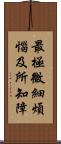 最極微細煩
惱及所知障